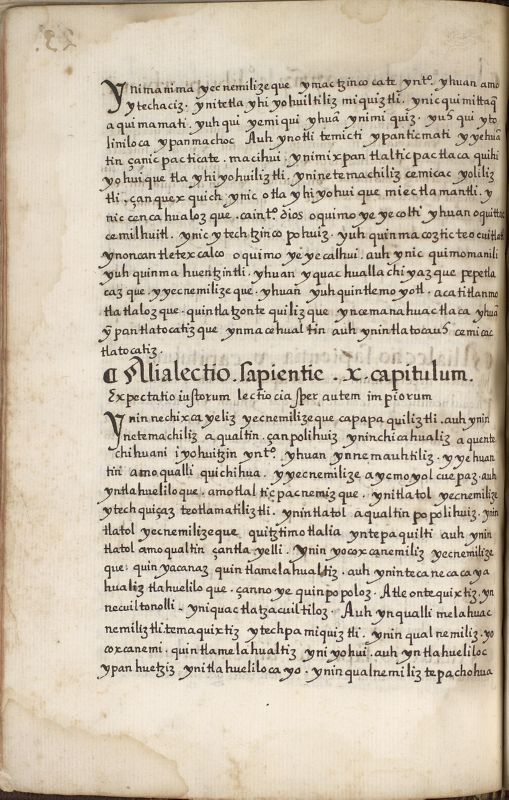 Ynimanima yecnemilizeque ymactzinco cate ynto. yhuan amo
ytechaciz. ynitetla yhi yohuiltiliz miquiztli. ynic quimittaq̄
aquimamati. yuh qui yemiqui yhuā ynimiquiz. yuhqui yto
liniloca ypanmachoc Auh ynotli temicti ypanticmati yyehuā
tin çanic pacticate. macihui. ynimixpan tlalticpactlaca quihi
yohuique tla yhi yohuiliztli. yninetemachiliz cemicac yoliliz
tli. çanquexquich ynic otla yhi yohui que miectlamantli. y
nic cenca hualoz que. cainto. dios oquimo ye yecolti yhuan oquittac
cemilhuitl. ynic ytechtzinco pohuiz. yuh quinma coztic teocuitlatl
ynoncan tletexcalco oquimo ye yecalhui. auh ynic quimomanili
yuh quinma huentzintli. yhuan yquac huallachiyazque pepetla
cazque. yyecnemilizeque. yhuan yuh quintlemoyotl. acatitlanmo
tlatlalozque. quintlatzontequilizque yncemanahuactlaca yhuā
ypantlatocatizque ynmacehualtin auh ynintlatocauh cemicac
tlatocatiz.
¶ Alialectio. sapientie. x. capitulum.
Expectatio iustorum lectio cia sper autem impiorum
Yninnechixcayeliz yecnemilizeque capapaquiliztli. auh ynin
netemachiliz aqualtin. çanpolihuiz yninchicahualiz aquente
chihuani iyohuitzin ynto. yhuan ynnemauhtiliz. yyehuan
tin amoqualli quichihua. yyecnemilize aycmoyolcuepaz. auh
yntlahueliloque. amotlalticpacnemizque. ynitlatol yecnemilize
ytechquiçaz teotlamatiliztli. ynintlatol aqualtin popolihuiz. ynin
tlatol yecnemilizeque quitztimotlalia yntepaquilti auh ynin
tlatol amoqualtin çantlayelli. Ynin yocoxcanemiliz yecnemilize
que. quinyacanaz quintlamelahualtiz. auh ynintecanecacaya
hualiz tlahueliloque. çannoyequinpopoloz. Atle ontequixtiz. yn
necuiltonolli. yniquac tlatzacuiltiloz. Auh ynqualli melahuac
nemiliztli. temaquixtiz ytechpamiquiztli. yninqualnemiliz. yo
coxcanemi. quintlamelahualtiz yniyohui. auh yntlahueliloc
ypanhuetziz ynitlahuelilocayo. yninqualnemiliz tepachohua